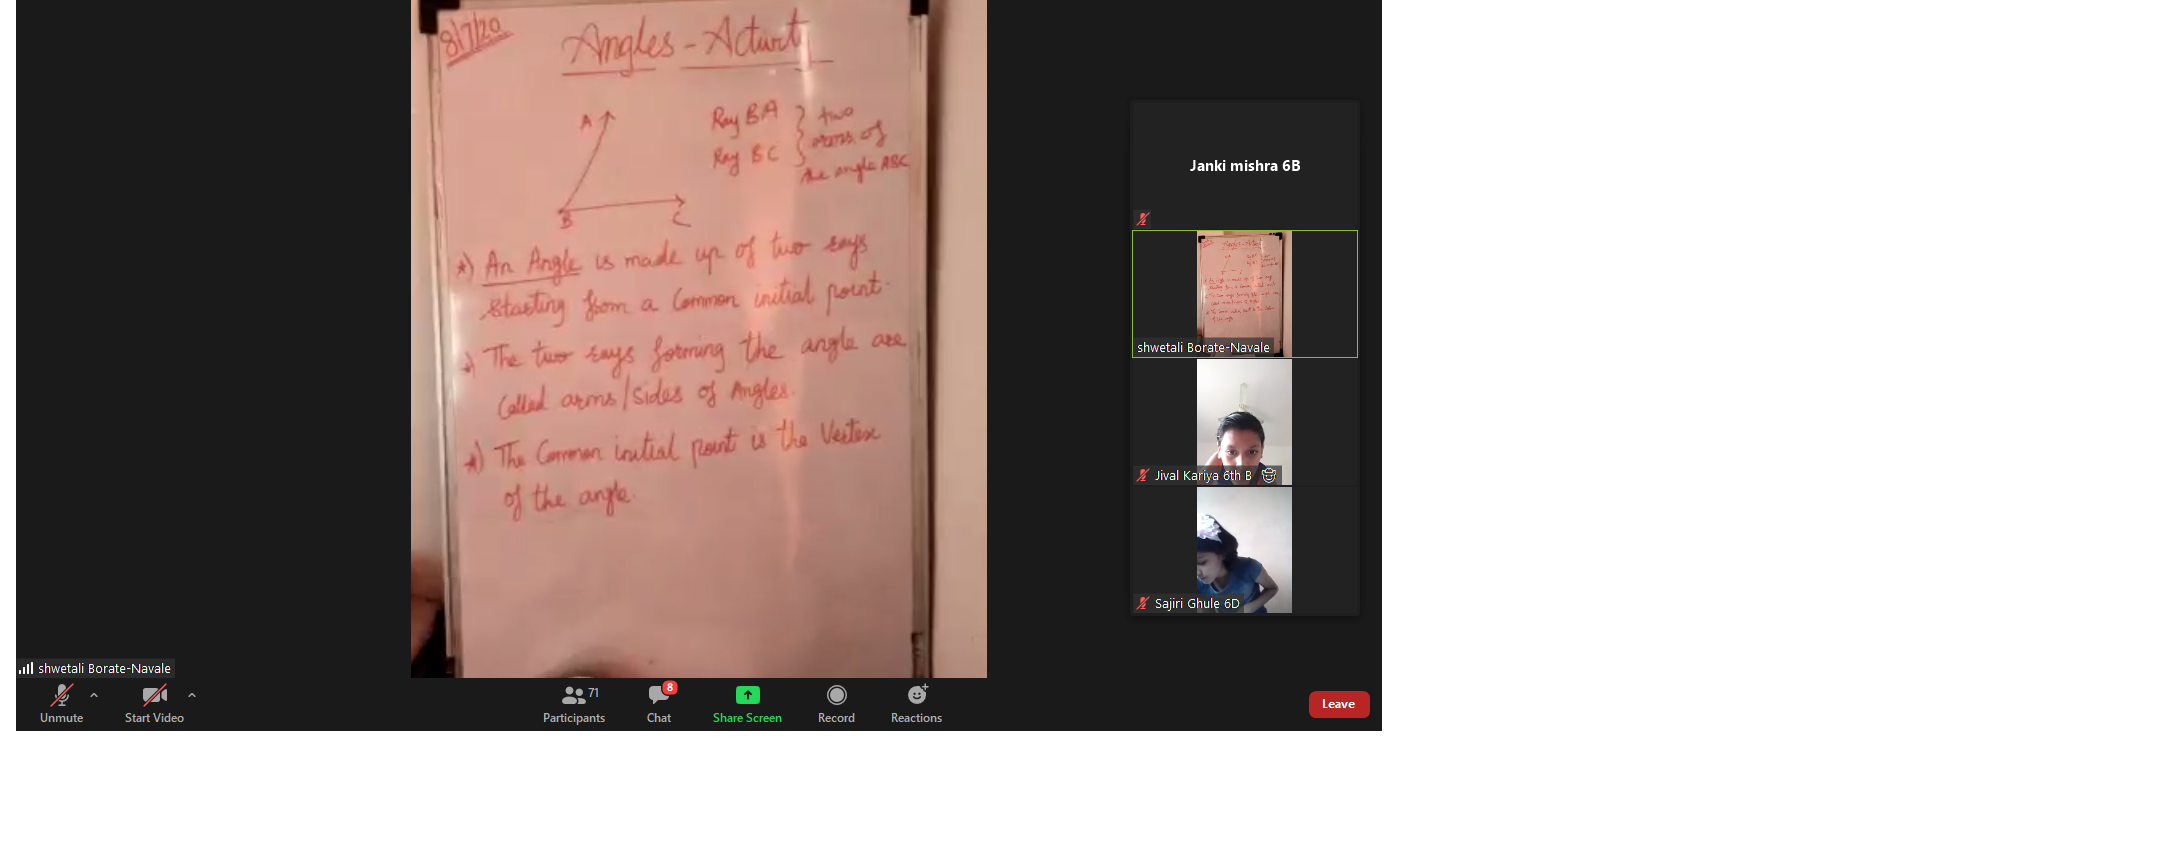 8/7/20
Angles - Activit
A
B
C
Ray BA
Ray BC
two
arms of
the angle ABC
*) An Angle is made up of two rays
starting from a Common initial point.
*) The two rays forming the angle are
Called arms/sides of Angles.
*) The Common initial point is the Vertex
of the angle.
Janki mishra 6B
shwetali Borate-Navale
Jival Kariya 6th B
Sajiri Ghule 6D
shwetali Borate-Navale
Unmute
Start Video
71
Participants
8
Chat
Share Screen
Record
Reactions
Leave